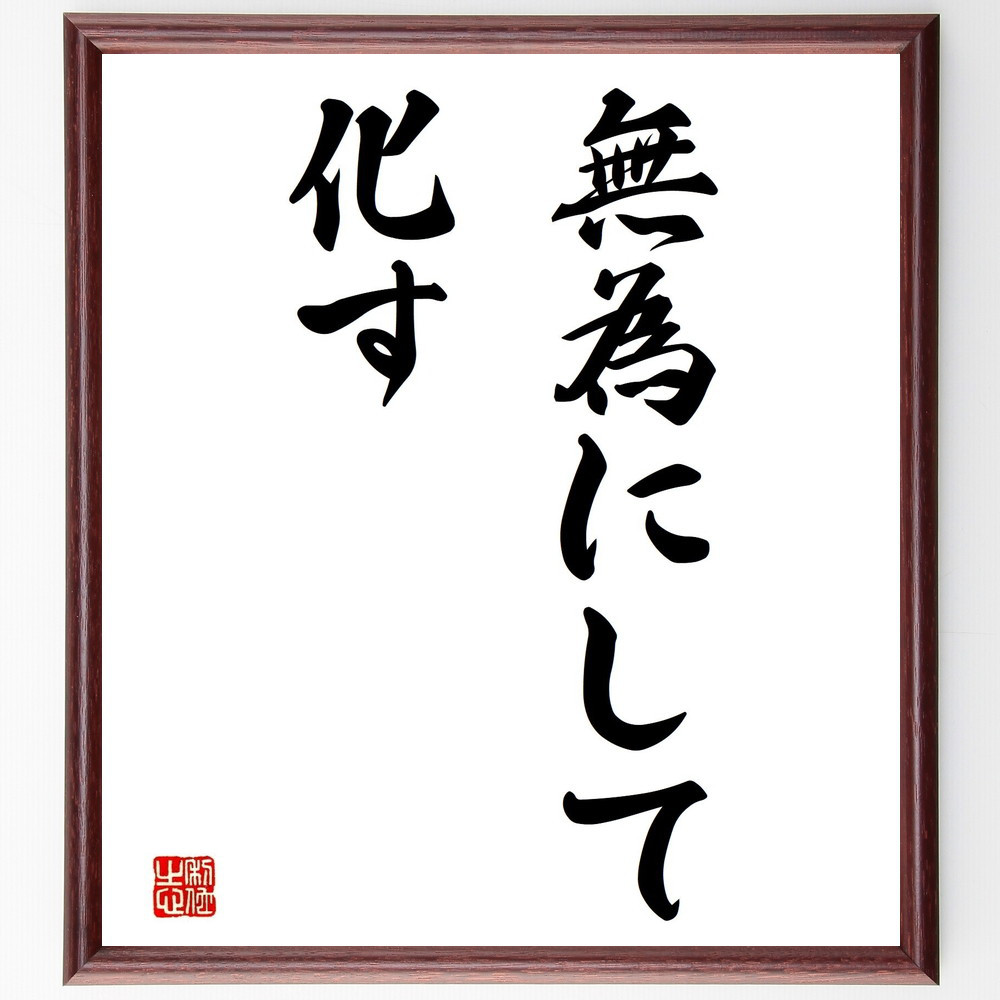 無為にして
化す